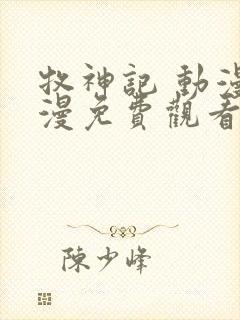 牧神記 動漫
漫免費觀看
陳少峰